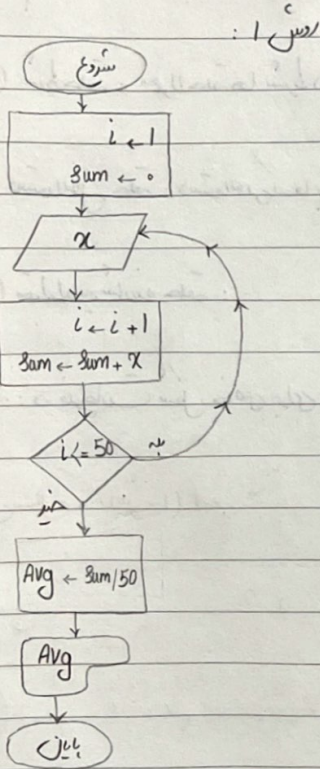 روش 1 :
شروع
i ← 1
Sum ← 0
x
i ← i + 1
Sum ← Sum + x
i <= 50
بله
خیر
Avg ← Sum/50
Avg
پایان